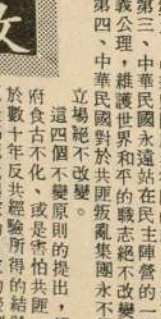 第三、中華民國永遠站在民主陣營的一
義公理，維護世界和平的職志絕不改變
第四、中華民國對於共匪叛亂集團永不
立場絕不改變。
這四個不變原則的提出，
府食古不化、或是害怕共匪
於數十年反共經驗所得的結